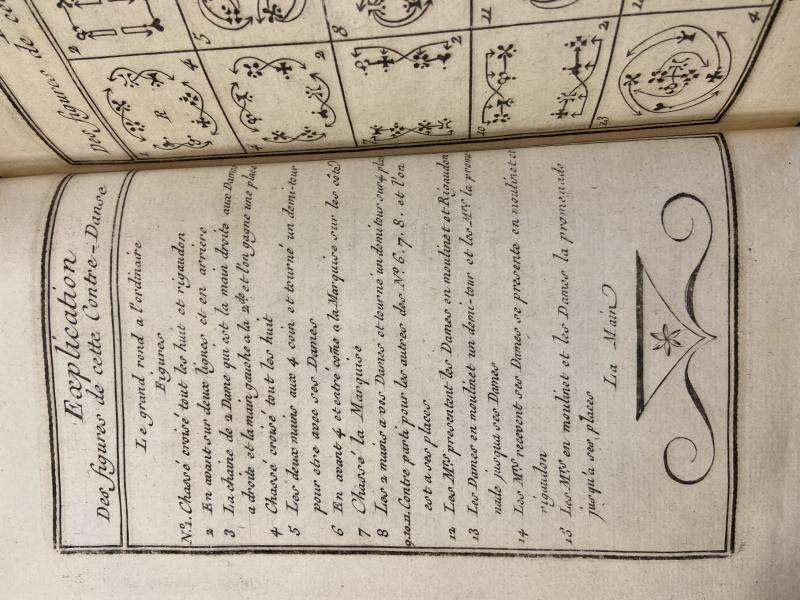 Explication
Des figures de cette Contre-Danse
Le grand rond a l'ordinaire
Figures
N.º1. Chassé croisé tout les huit et rigaudon
2 En avant sur deux lignes et en arriere
3 La chaine de 2 Dame qui est la main droite aux Dames
a droite et la main gauche a la 2.de et l'on gagne une place
4 Chassé croisé tout les huit
5 Les deux mains aux 4 coin et tourné un demi-tour
pour etre avec ses Dames
6 En avant 4 et entré come a la Marquise sur les coté
7 Chassé la Marquise
8 Les 2 mains a ses Dames et tourné un demi tour sur 4 pla
9.10.11. Contre parti pour les autres des Nº. 6. 7. 8. et l'on
est a ses places
12 Les Mrs presentent les Dames en moulinet et Rigaudon
13 Les Dames en moulinet un demi-tour et les Mrs la prome
nade jusqua ses Dames
14 Les Mrs recevent ses Dames se presente en moulinet et
rigaudon
15 Les Mrs en moulinet et les Dames la promenade
jusqu'a ses places
La Main
Des figures de ce
1
R
4
2
4
2
5
7
2
8
10
2
11
13
4